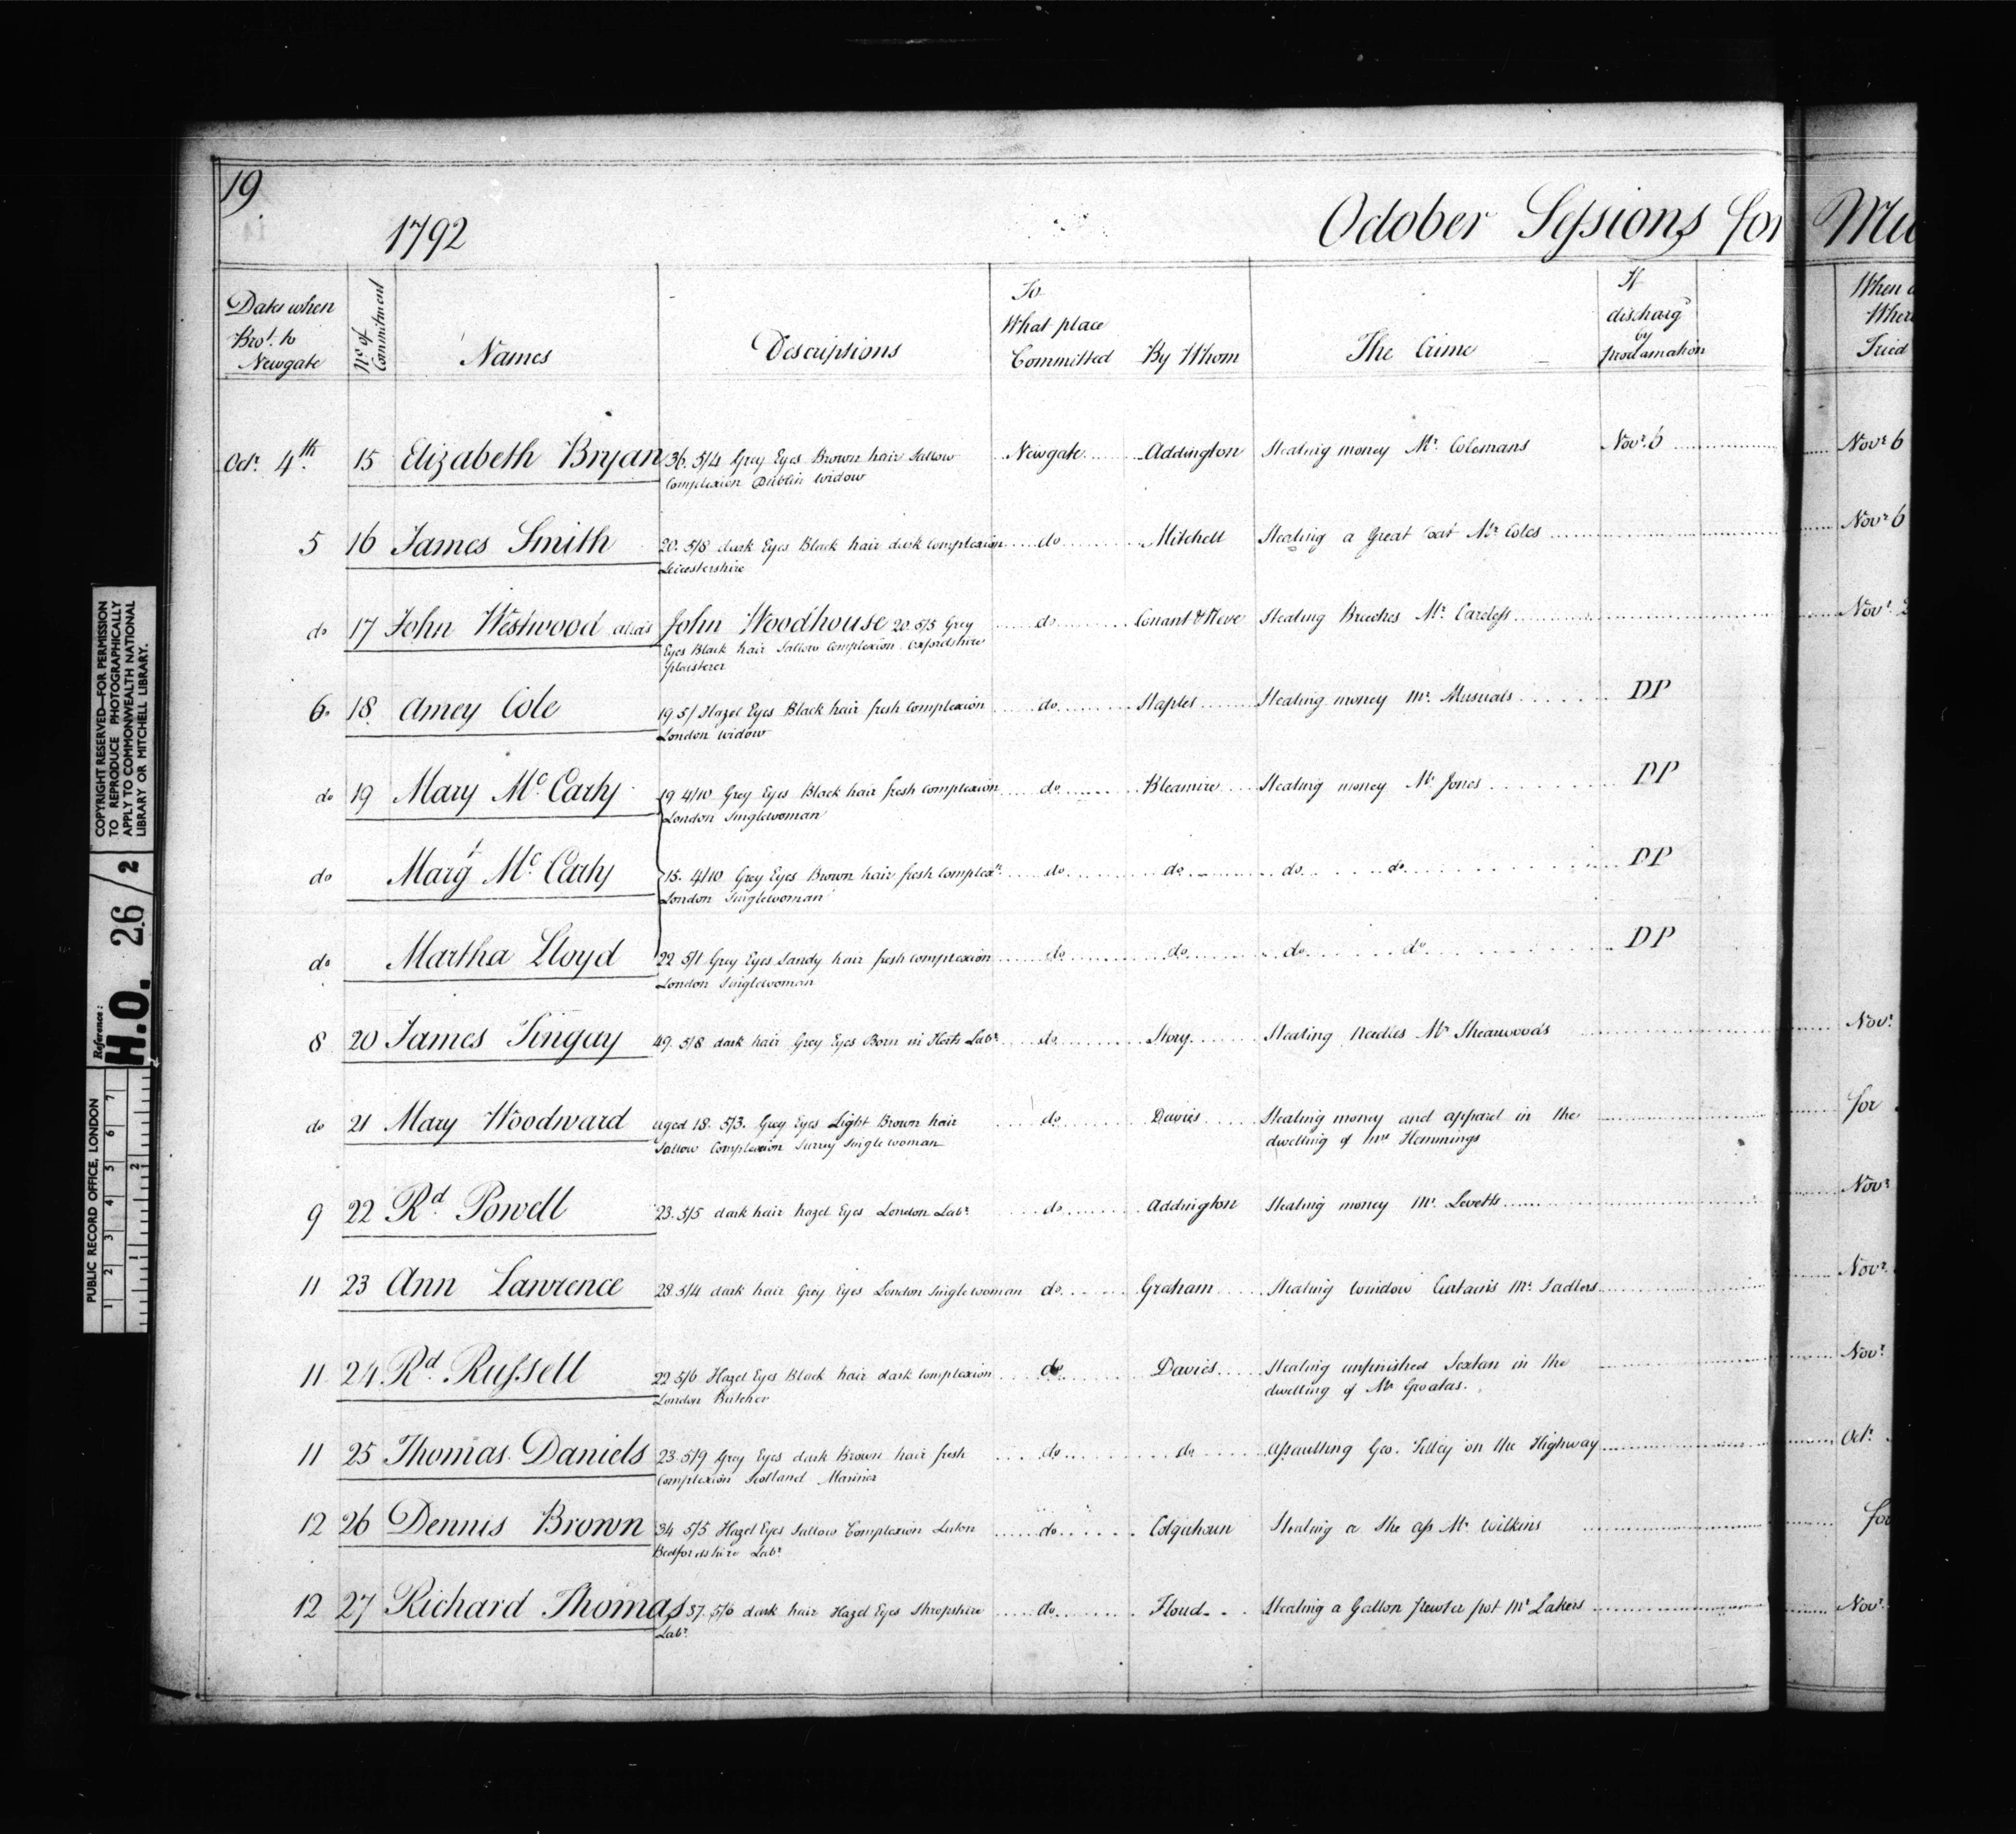 19
1792
October Sessions for Mid
Dates when
Bro.t to
Newgate
No. of
Commitment
Names
Descriptions
To
What place
Committed
By Whom
The Crime
If
discharg'd
by
proclamation
When
Where
Tried
Oct.r 4th. 15 Elizabeth Bryan 36. 5/4 Grey Eyes Brown hair Sallow Newgate Addington Stealing money Mr. Colemans Nov.r 6 Nov.r 6
Complexion Dublin widow
5 16 James Smith 20. 5/8 dark Eyes Black hair dark Complexion do Mitchell Stealing a Great Coat Mr. Coles Nov.r 6
Leicestershire
do 17 John Westwood alias John Woodhouse 20. 5/5 Grey do Conant & Neve Stealing Breeches Mr. Careless Nov.r
Eyes Black hair Sallow Complexion Oxfordshire
plaisterer
6. 18 Amey Cole 19 5/ Hazel Eyes Black hair fresh Complexion do Staples Stealing money Mr. DP
London widow
do 19 Mary McCarty 19 4/10 Grey Eyes Black hair fresh Complexion do Bleamire Stealing money Mr. Jones DP
London Singlewoman
do Marg.t McCarty 15. 4/10 Grey Eyes Brown hair fresh Complex.n do do do do DP
London Singlewoman
do Martha Lloyd 22 5/1 Grey Eyes Sandy hair fresh complexion do do do do DP
London Singlewoman
8 20 James Tingay 49. 5/8 dark hair Grey Eyes Born in Herts Lab.r do Story Stealing Needles Mr. Shearwoods Nov.r
do 21 Mary Woodward aged 18. 5/3. Grey Eyes Light Brown hair do Davies Stealing money and apparel in the for
Sallow Complexion Surrey Singlewoman dwelling of Mrs Hemmings
9 22 Rd. Powell 23. 5/5 dark hair hazel Eyes London Lab.r do Addington Stealing money Mr. Levetts Nov.r
11 23 Ann Lawrence 28. 5/4 dark hair Grey Eyes London Singlewoman do Graham Stealing window Curtains Mr. Sadlers Nov.r
11 24 Rd. Russell 22 5/6 Hazel Eyes Black hair dark Complexion do Davies Stealing unfinished Sextan in the Nov.r
London Butcher dwelling of Mr.
11 25 Thomas Daniels 23. 5/9 Grey Eyes dark Brown hair fresh do do Assaulting Geo. Tilley on the Highway Oct.r
Complexion Scotland Mariner
12 26 Dennis Brown 34 5/5 Hazel Eyes Sallow Complexion Luton do Colquhoun Stealing a She ass Mr. Wilkins for
Bedfordshire Lab.r
12 27 Richard Thomas 37. 5/6 dark hair Hazel Eyes Shropshire do Floud Stealing a Gallon pewter pot Mr Lakers Nov.r
Lab.r
COPYRIGHT RESERVED—FOR PERMISSION
TO REPRODUCE PHOTOGRAPHICALLY
APPLY TO COMMONWEALTH NATIONAL
LIBRARY OR MITCHELL LIBRARY.
Reference:
H.O. 26/2
PUBLIC RECORD OFFICE, LONDON
1 2 3 4 5 6 7
1 2